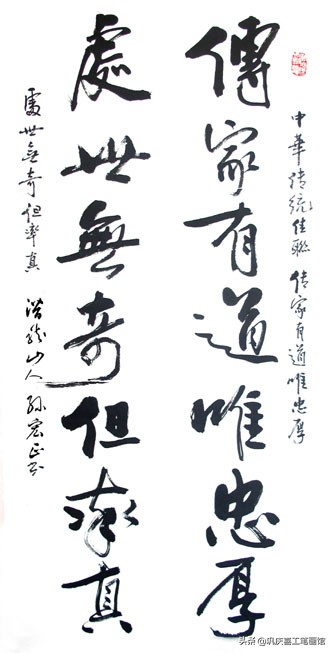 中華传统佳聯 传家有道唯忠厚
傳家有道唯忠厚
處世無奇但率真
處世無奇但率真 山人 孙宏正书
头条 @巩庆喜工笔画馆